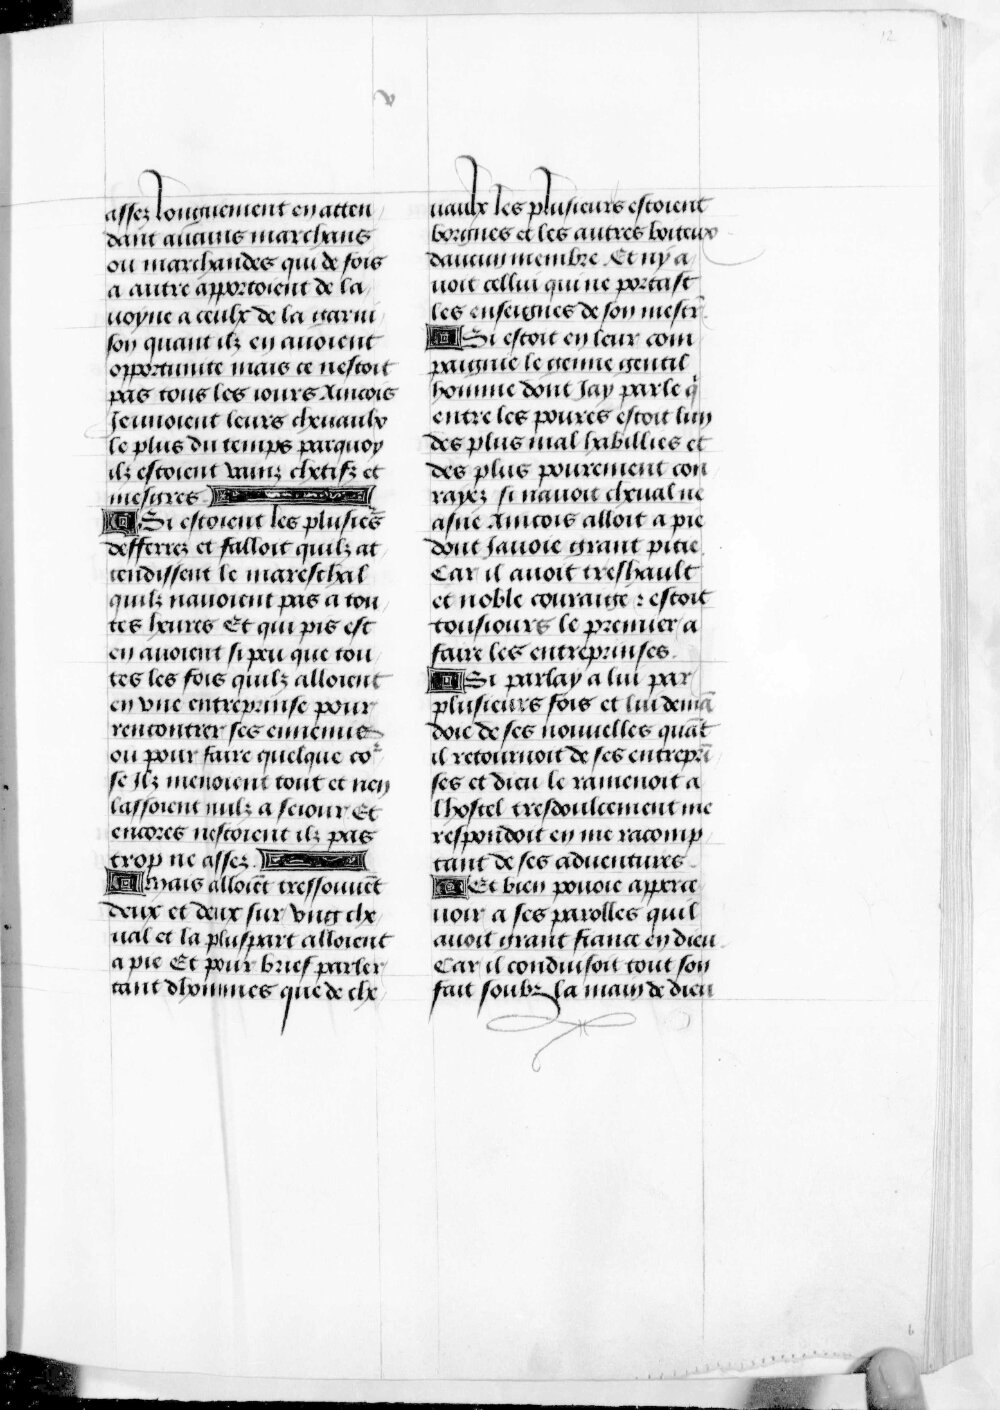 12
v
assez longuement en atten
dant aucuns marchans
ou marchandes qui de fois
a autre apportoient de la
uoyne a ceulx de la garni
son quant ilz en auoient
opportunite mais ce nestoit
pas tous les iours Aincois
Jeunoient leurs cheuaulx
le plus du temps parquoy
ilz estoient vainz chetifz et
mesgres
Si estoient les plusieꝰrs
defferrez et falloit quilz at
tendissent le mareschal
quilz nauoient pas a tou
tes heures Et qui pis est
en auoient si peu que tou
tes les fois quilz alloient
en vne entreprinse pour
rencontrer ses ennemis
ou pour faire quelque co
se Ilz menoient tout et nen
lassoient nulz a seiour Et
encores nestoient ilz pas
trop ne assez.
Mais alloiēt tressouuēt
deux et deux sur vng che
ual et la pluspart alloient
a pie Et pour brief parler
tant dhommes que de che
uaulx les plusieurs estoient
borgnes et les autres boiteux
daucun membre. Et ny a
uoit cellui qui ne portast
les enseignes de son mestr̄.
Si estoit en leur com
paignie le genne gentil
homme dont Jay parle q̇
entre les poures estoit lun
des plus mal habillies et
des plus pourement con
rayez si nauoit cheual ne
asne Aincois alloit a pie
dont Jauoie grant pitie.
Car il auoit treshault
et noble couraige : estoit
tousiours le premier a
faire les entreprinses.
Si parlay a lui par
plusieurs fois et lui demā
doie de ses nouuelles quāt
il retournoit de ses entreprī
ses et dieu le ramenoit a
lhostel tresdoulcement me
respondoit en me racomp
tant de ses aduentures.
Et bien pouoie apperce
uoir a ses parolles quil
auoit grant fiance en dieu
Car il conduisoit tout son
fait soubz la main de dieu
6